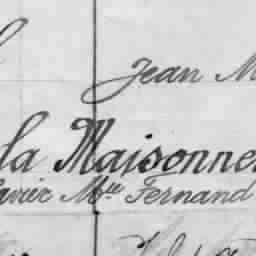 Jean M
la Maisonne
avier Mlle Fernand